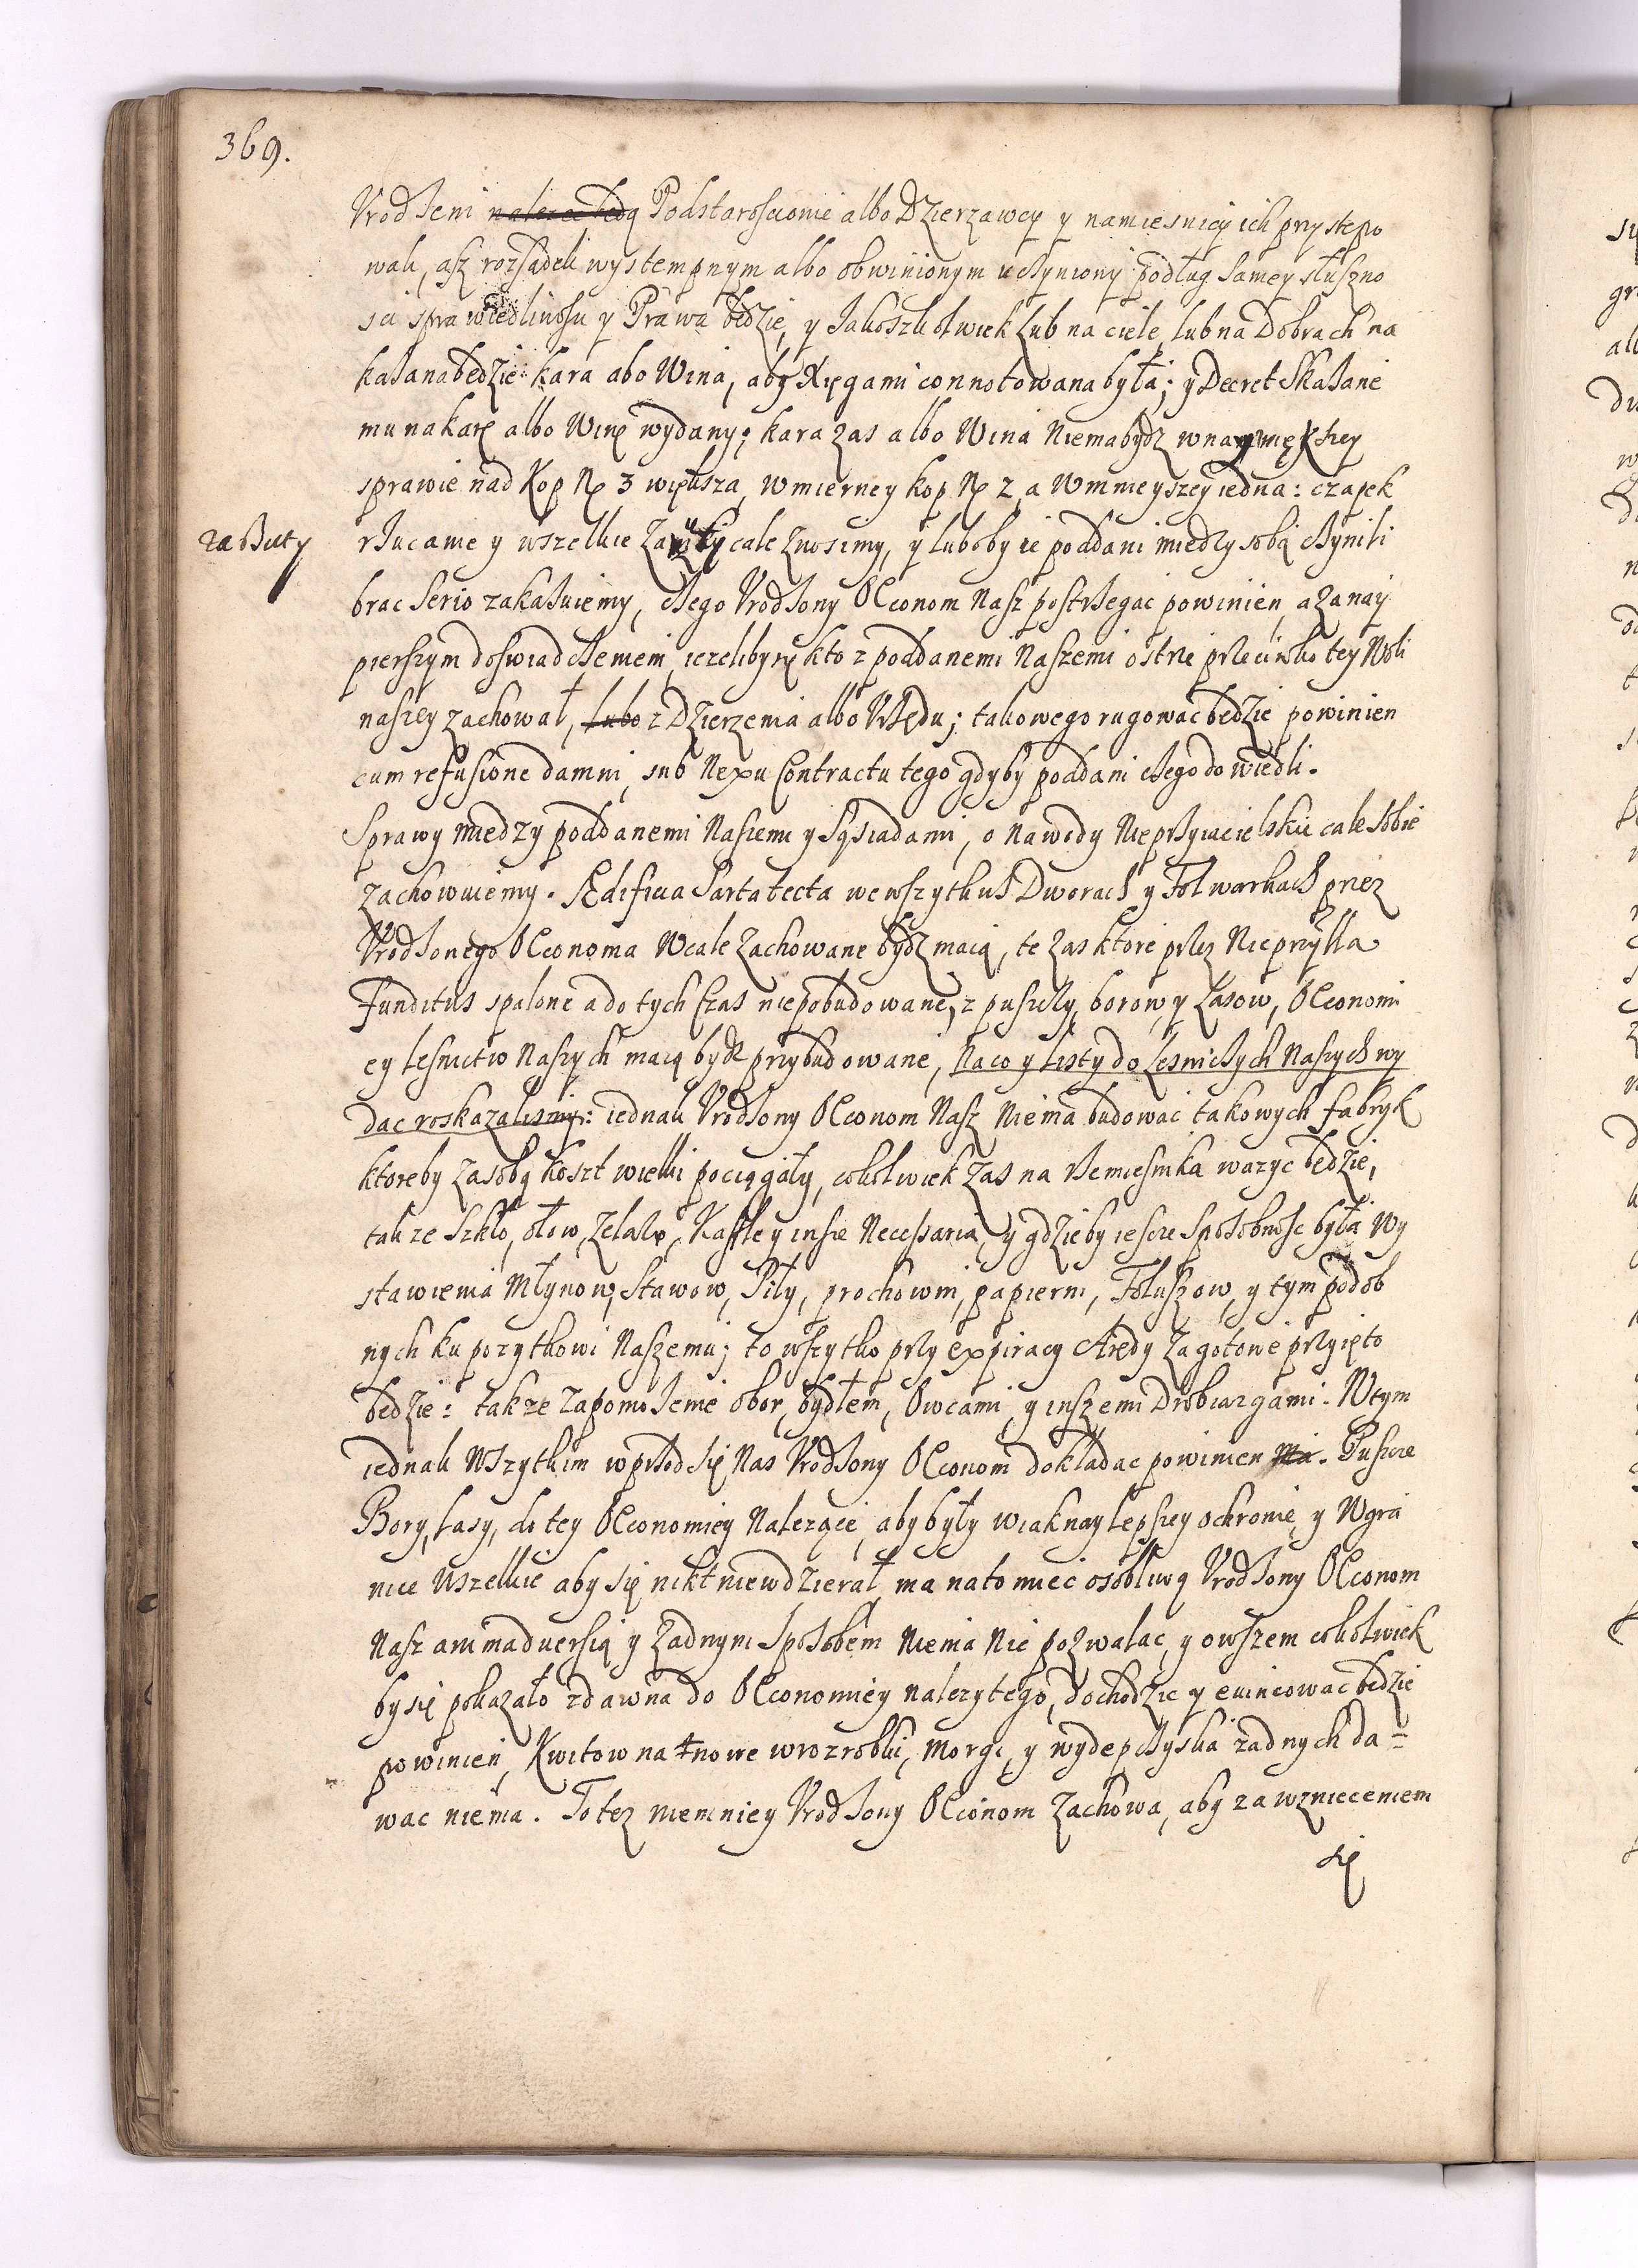 369.
Vrodzeni Podstarosciowie albo Dzierzawcy y namiesnicy ich przystepo
wali, asz rozsądek wystempnym albo obwinionym uczyniony podług samey słuszno
sci sprawiedliwosci y Prawa będzie, y Jakoszkolwiek lub na ciele, lub na Dobrach na
kazana będzie kara abo Wina, aby Xięgami connotowana była; y Decret Skazane
mu na karę albo Winę wydany; kara zas albo Wina Niema bydz w naywiększey
sprawie nad Kop 3 większa, W mierney kop 2, a W mnieyszey iedna: czapek
zarzuty
rzucanie y wszelkie cale znosimy, y luboby ie poddani miedzy sobą czynili
brac serio zakazuiemy, czego Vrodzony OEconom Nasz postrzegac powinien, a za nay
pierszym doswiadczeniem, iezeliby się kto z poddanemi Naszemi ostrze przeciwko tey Woli
naszey zachował, lubo z Dzierzenia albo Vrzędu; takowego rugowac będzie powinien
cum refusione damni, sub Nexu Contractu tego gdyby poddani czego dowiedli.
Sprawy miedzy poddanemi Naszemi y Sąsiadami, o Nawody Nieprzyiacielskie cale sobie
zachowuiemy. AEdificia Sarta tecta we wszytkich Dworach y Folwarkach przez
Vrodzonego OEconoma Wcale zachowane bydz maią, te zas ktore przez Nieprzyia
Funditus spalone a do tych Czas niepobudowane, z puszczy, borow, y Lasow, OEconomi
ey Lesnictw Naszych maią bydz przybudowane, Na co y Listy do Lesniczych Naszych wy
dac roskazalismy: iednak Vrodzony OEconom Nasz Niema budowac takowych fabryk
ktoreby za sobą koszt wielki pociągały, cokolwiek zas na rzemiesnika wazyc będzie,
takze Szkło, ołow, zelazo, Kafle y insze Necessaria, y gdzieby ieszcze Sposobnosc była Wy
stawienia Młynow, Stawow, Piły, prochowni, papierni, Foluszow, y tym podob
nych ku pozytkowi Naszemu; to wszytko przy expiracy Arędy za gotowe przyięto
będzie: takze zapomozenie obor, bydłem, Owcami, y inszemi Drobiazgami. W tym
iednak Wszytkim wprzod się Nas Vrodzony OEconom dokładac powinien ma. Puszcze
Bory, Lasy, do tey OEconomiey Nalezące, aby były w iak naylepszey ochronie, y W gra
nice Wszelkie aby się nikt niewdzierał, ma na to miec osobliwą Vrodzony OEconom
Nasz animadversią y zadnym sposobem Niema Nic pozwalac, y owszem cokolwiek
by się pokazało zdawna do OEconomiey nalezytego, dochodzic y evincowac będzie
powinien, Kwitow na nowe wrozrobki, Morgi, y wydepczyska zadnych da=
wac niema. To tez niemniey Vrodzony OEconom zachowa, aby za wznieceniem
się